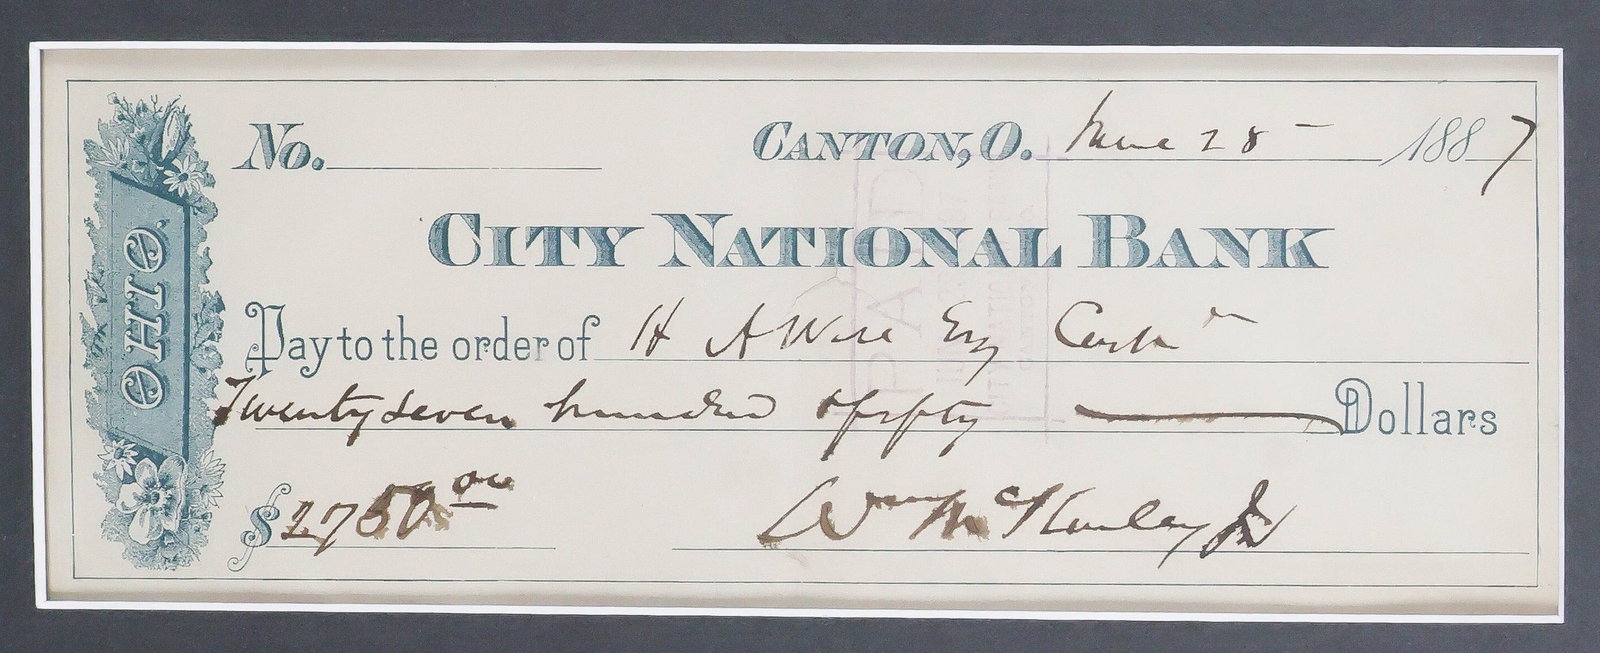 No. CANTON, O. June 28 - 1887
CITY NATIONAL BANK
Pay to the order of H A Wise Esq Cash r
Twenty seven hundred & fifty Dollars
$2750 00 Wm McKinley Jr
OHIO.
PAID